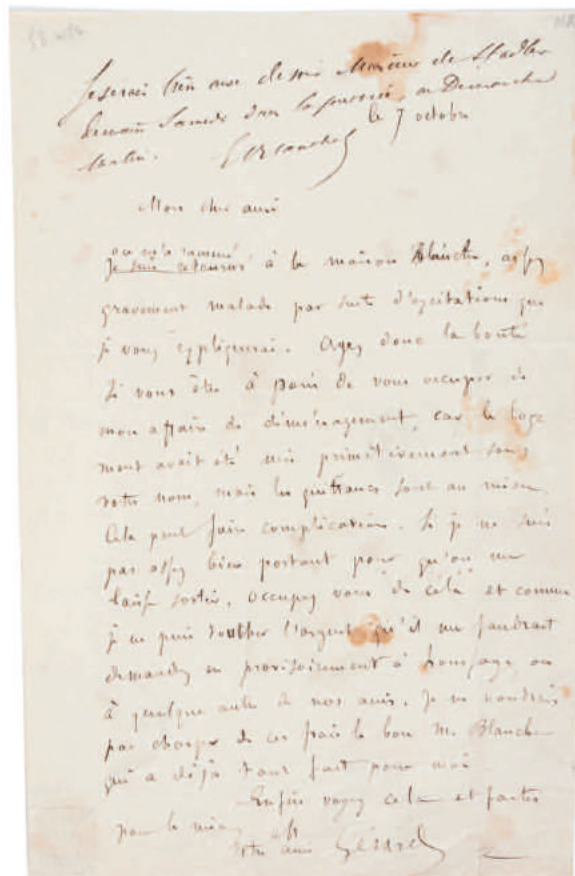 Je serai bien aise de voir Monsieur de Stadler
demain Samedi dans la journée, ou Dimanche
matin. E Blanche
le 7 octobre
Mon cher ami
on m'a ramené
Je suis retourné à la maison Blanche, assez
gravement malade par suite d'excitations que
je vous expliquerai. Ayez donc la bonté
si vous êtes à paris de vous occuper de
mon affaire de déménagement, car le loge
ment avait été mis primitivement sous
votre nom, mais les quittances sont au mien.
Cela peut faire complication. Si je ne suis
pas assez bien portant pour qu'on me
laisse sortir, occupez vous de celà et comme
je ne puis toucher l'argent qu'il me faudrait
demandez en provisoirement à houssaye ou
à quelque autre de nos amis. Je ne voudrais
pas charger de ces frais le bon M. Blanche
qui a déjà tant fait pour moi
Enfin voyez cela et faites
pour le mieux
Votre ami Gérard